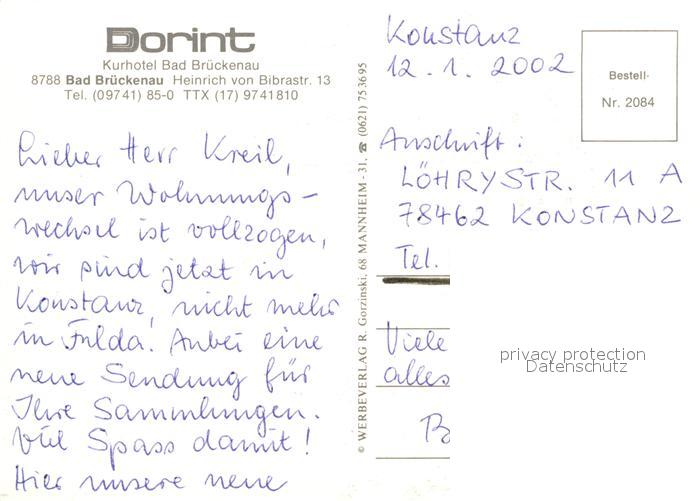 Dorint
Kurhotel Bad Brückenau
8788 Bad Brückenau Heinrich von Bibrastr. 13
Tel. (09741) 85-0 TTX (17) 9741810
Lieber Herr Kreil,
unser Wohnungs-
wechsel ist vollzogen,
wir sind jetzt in
Konstanz, nicht mehr
in Fulda. Anbei eine
neue Sendung für
Ihre Sammlungen.
Viel Spass damit!
Hier unsere neue
© WERBEVERLAG R. Gorzinski, 68 MANNHEIM-31, ☎ (0621) 75 36 95
Konstanz
12.1.2002
Bestell-
Nr. 2084
Anschrift:
LÖHRYSTR. 11 A
78462 KONSTANZ
Tel.
Viele
alles
B
privacy protection
Datenschutz